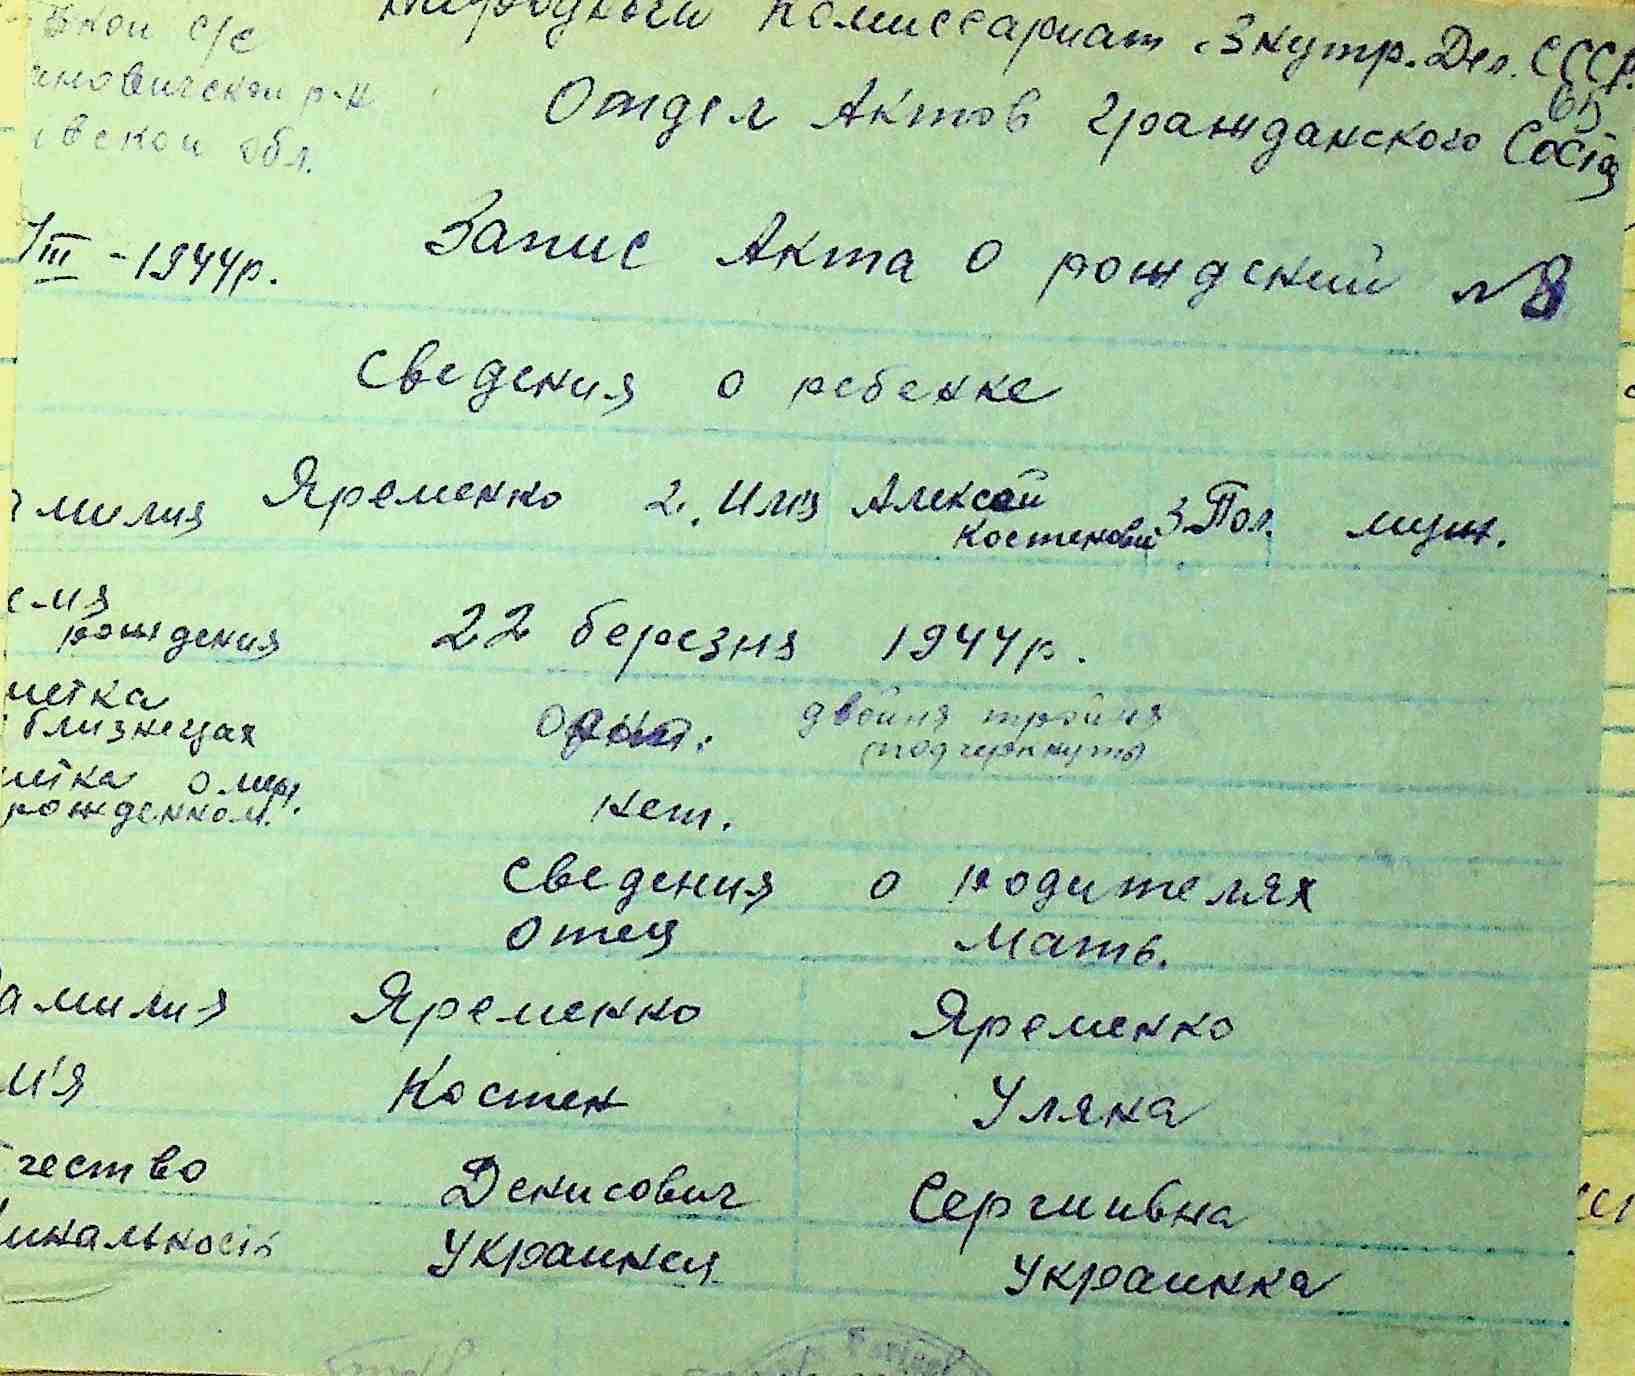 Комиссариат Внутр. Дел. СССР.
с/с
р-н
обл.
Отдел Актов Гражданского Состоя
65
III - 1944р.
Запис Акта о рождений № 8
Сведения о ребенке
милия Яременко 2. Имя Алексей Костенович 3. Пол. муж.
рождения 22 березня 1944р.
метка близнецах одно. двойня тройня (подчеркнуть
метка о мер. рожденном. нет.
Сведения о родителях
Отец Мать.
амилия Яременко Яременко
м'я Костен Уляна
чество Денисович Сергиивна
инальность Украинец Украинка